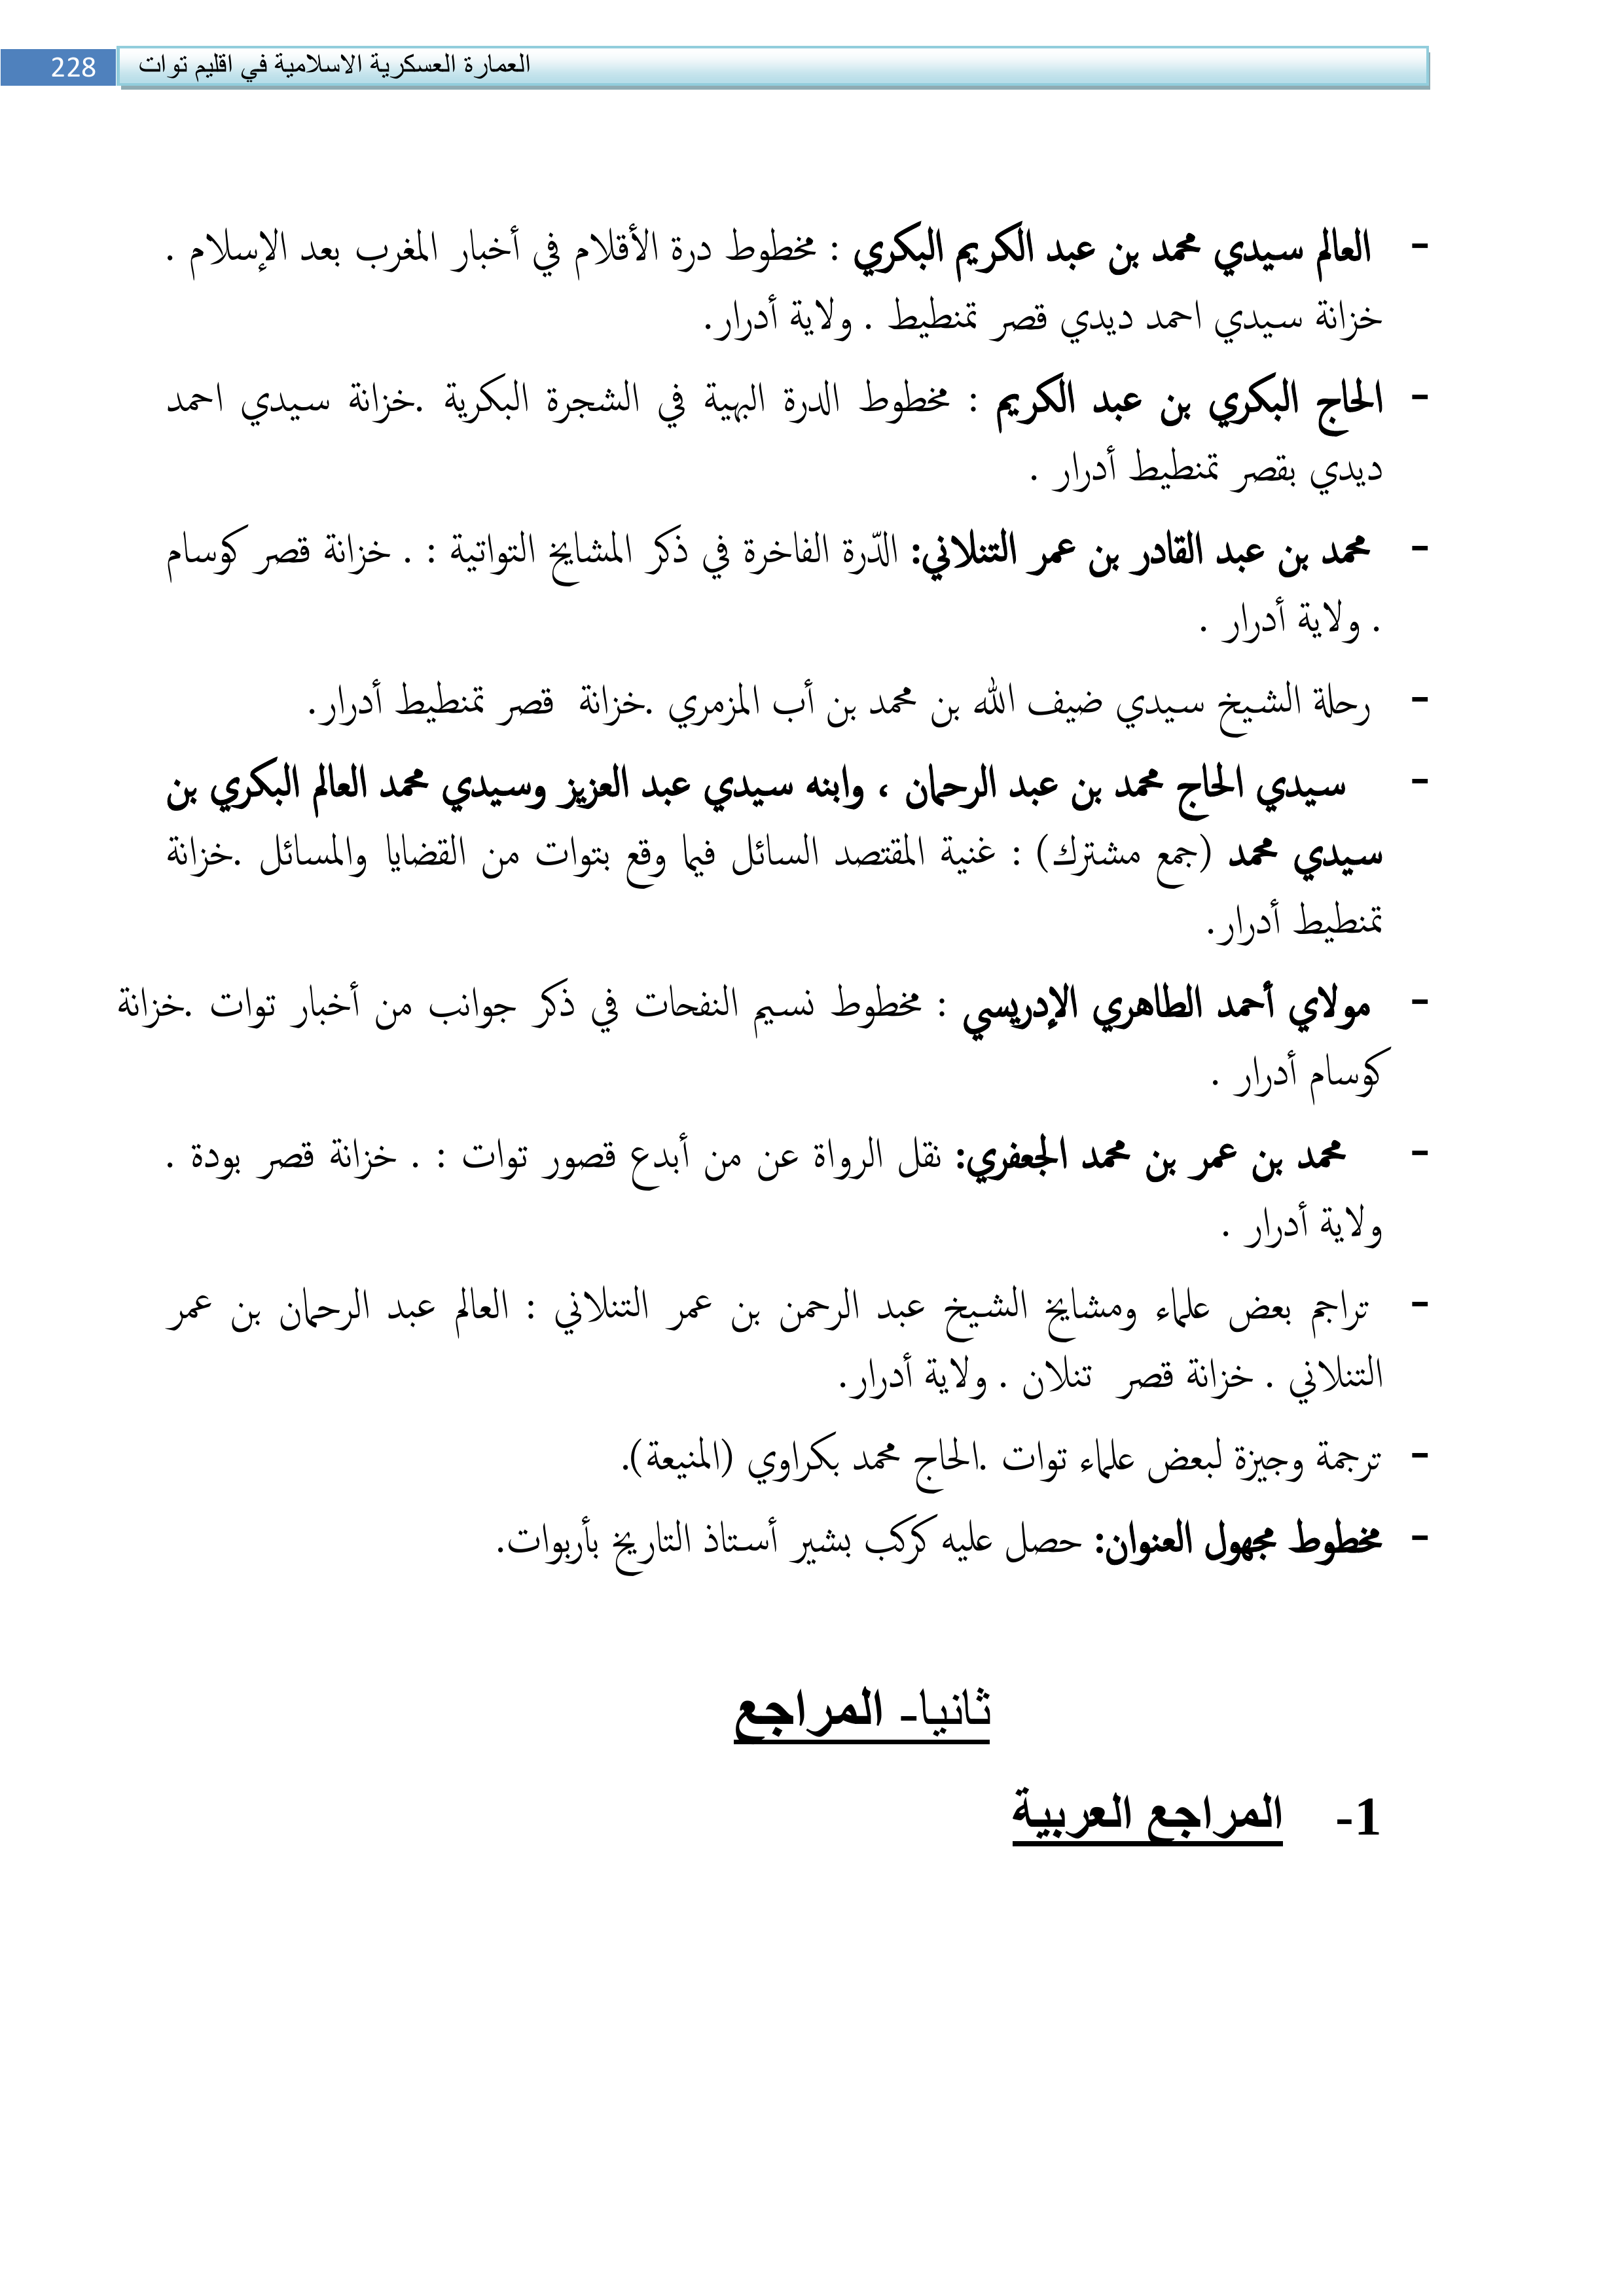 228 العمارة العسكرية الاسلامية في اقليم توات
- العالم سيدي محمد بن عبد الكريم البكري : مخطوط درة الأقلام في أخبار المغرب بعد الإسلام .
خزانة سيدي احمد ديدي قصر تمنطيط . ولاية أدرار.
- الحاج البكري بن عبد الكريم : مخطوط الدرة البهية في الشجرة البكرية .خزانة سيدي احمد
ديدي بقصر تمنطيط أدرار .
- محمد بن عبد القادر بن عمر التنلاني: الدّرة الفاخرة في ذكر المشايخ التواتية : . خزانة قصر كوسام
. ولاية أدرار .
- رحلة الشيخ سيدي ضيف الله بن محمد بن أب المزمري .خزانة قصر تمنطيط أدرار.
- سيدي الحاج محمد بن عبد الرحمان ، وابنه سيدي عبد العزيز وسيدي محمد العالم البكري بن
سيدي محمد (جمع مشترك) : غنية المقتصد السائل فيما وقع بتوات من القضايا والمسائل .خزانة
تمنطيط أدرار.
- مولاي أحمد الطاهري الإدريسي : مخطوط نسيم النفحات في ذكر جوانب من أخبار توات .خزانة
كوسام أدرار .
- محمد بن عمر بن محمد الجعفري: نقل الرواة عن من أبدع قصور توات : . خزانة قصر بودة .
ولاية أدرار .
- تراجم بعض علماء ومشايخ الشيخ عبد الرحمن بن عمر التنلاني : العالم عبد الرحمان بن عمر
التنلاني . خزانة قصر تنلان . ولاية أدرار.
- ترجمة وجيزة لبعض علماء توات .الحاج محمد بكراوي (المنيعة).
- مخطوط مجهول العنوان: حصل عليه كركب بشير أستاذ التاريخ بأربوات.
ثانيا- المراجع
1- المراجع العربية